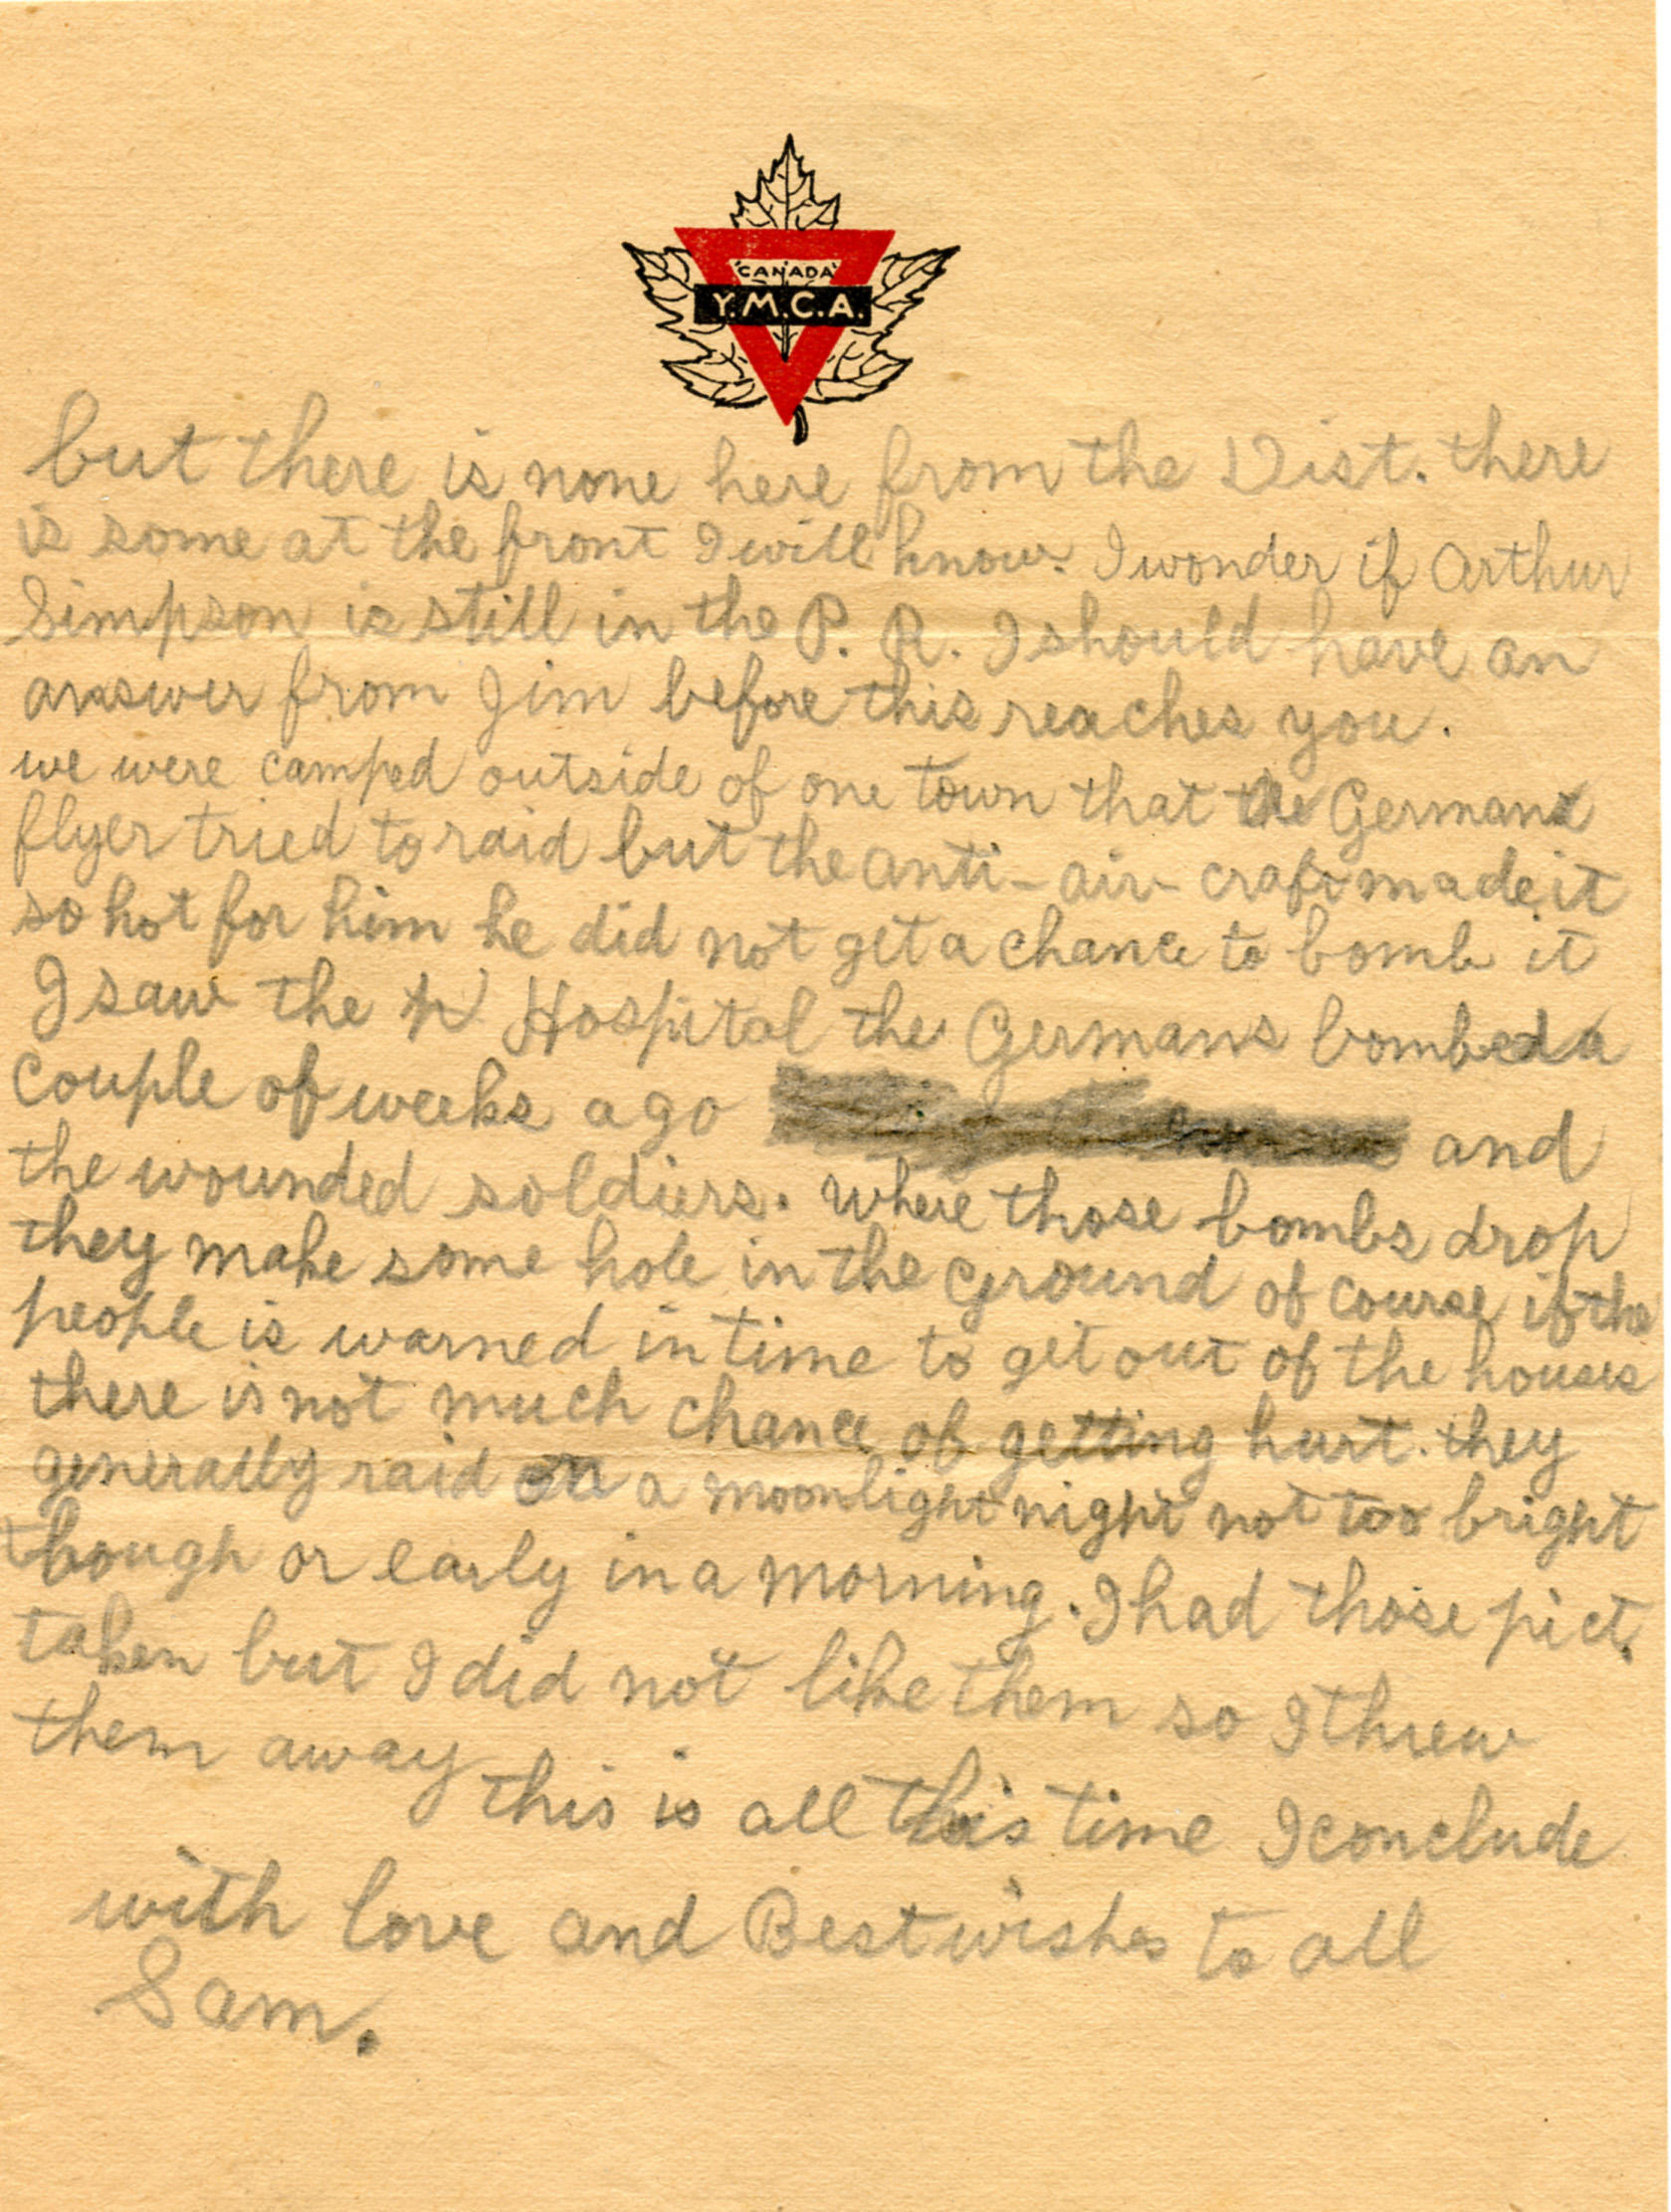 CANADA
Y.M.C.A.
but there is none here from the Dist. there
is some at the front I will know. I wonder if Arthur
Simpson is still in the P. R. I should have an
answer from Jim before this reaches you.
we were camped outside of one town that the German
flyer tried to raid but the anti-air-craft made it
so hot for him he did not get a chance to bomb it
I saw the Hospital the Germans bombed a
couple of weeks ago and
the wounded soldiers. Where those bombs drop
they make some hole in the ground of course if the
people is warned in time to get out of the houses
there is not much chance of getting hurt. they
generally raid on a moonlight night not too bright
though or early in a morning. I had those pict.
taken but I did not like them so I threw
them away this is all this time I conclude
with love and Best wishes to all
Sam.